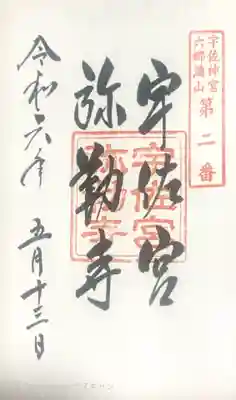 宇佐神宮
六郷満山
第二番
宇佐宮
弥勒寺
宇佐宮
弥勒寺
令和六年 五月十三日